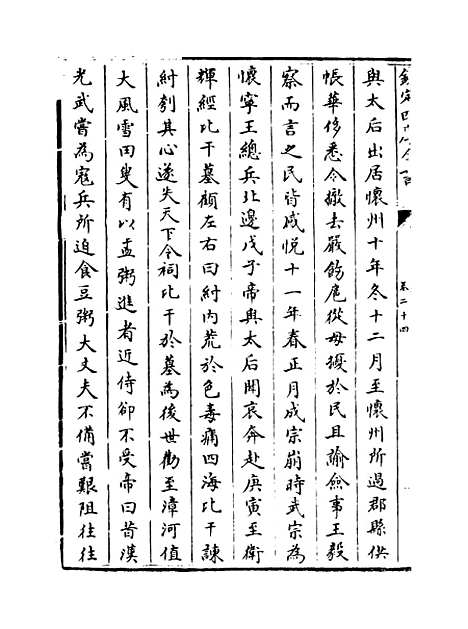 欽定四庫全書
卷二十四
與太后出居懷州十年冬十二月至懷州所過郡縣供
帳華侈悉令撤去嚴飭扈從毋擾於民且諭僉事王毅
察而言之民皆感悅十一年春正月成宗崩時武宗為
懷寧王總兵北邊戊子帝與太后聞哀奔赴庚寅至衛
輝經比干墓顧左右曰紂内荒於色毒痡四海比干諫
紂刳其心遂失天下令祠比干於墓為後世勸至漳河值
大風雪田叟有以盂粥進者近侍卻不受帝曰昔漢
光武嘗為寇兵所迫食豆粥大丈夫不備嘗艱阻往往